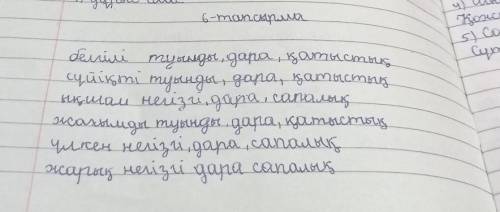 6-тапсырма
4)
Қож
5) Со
Сұр
белгілі туынды, дара, қатыстық
сүйікті туынды, дара, қатыстық
ықшам негізгі, дара, сапалық
жағымды туынды, дара, қатыстық
үлкен негізгі, дара, сапалық
жарық негізгі дара сапалық